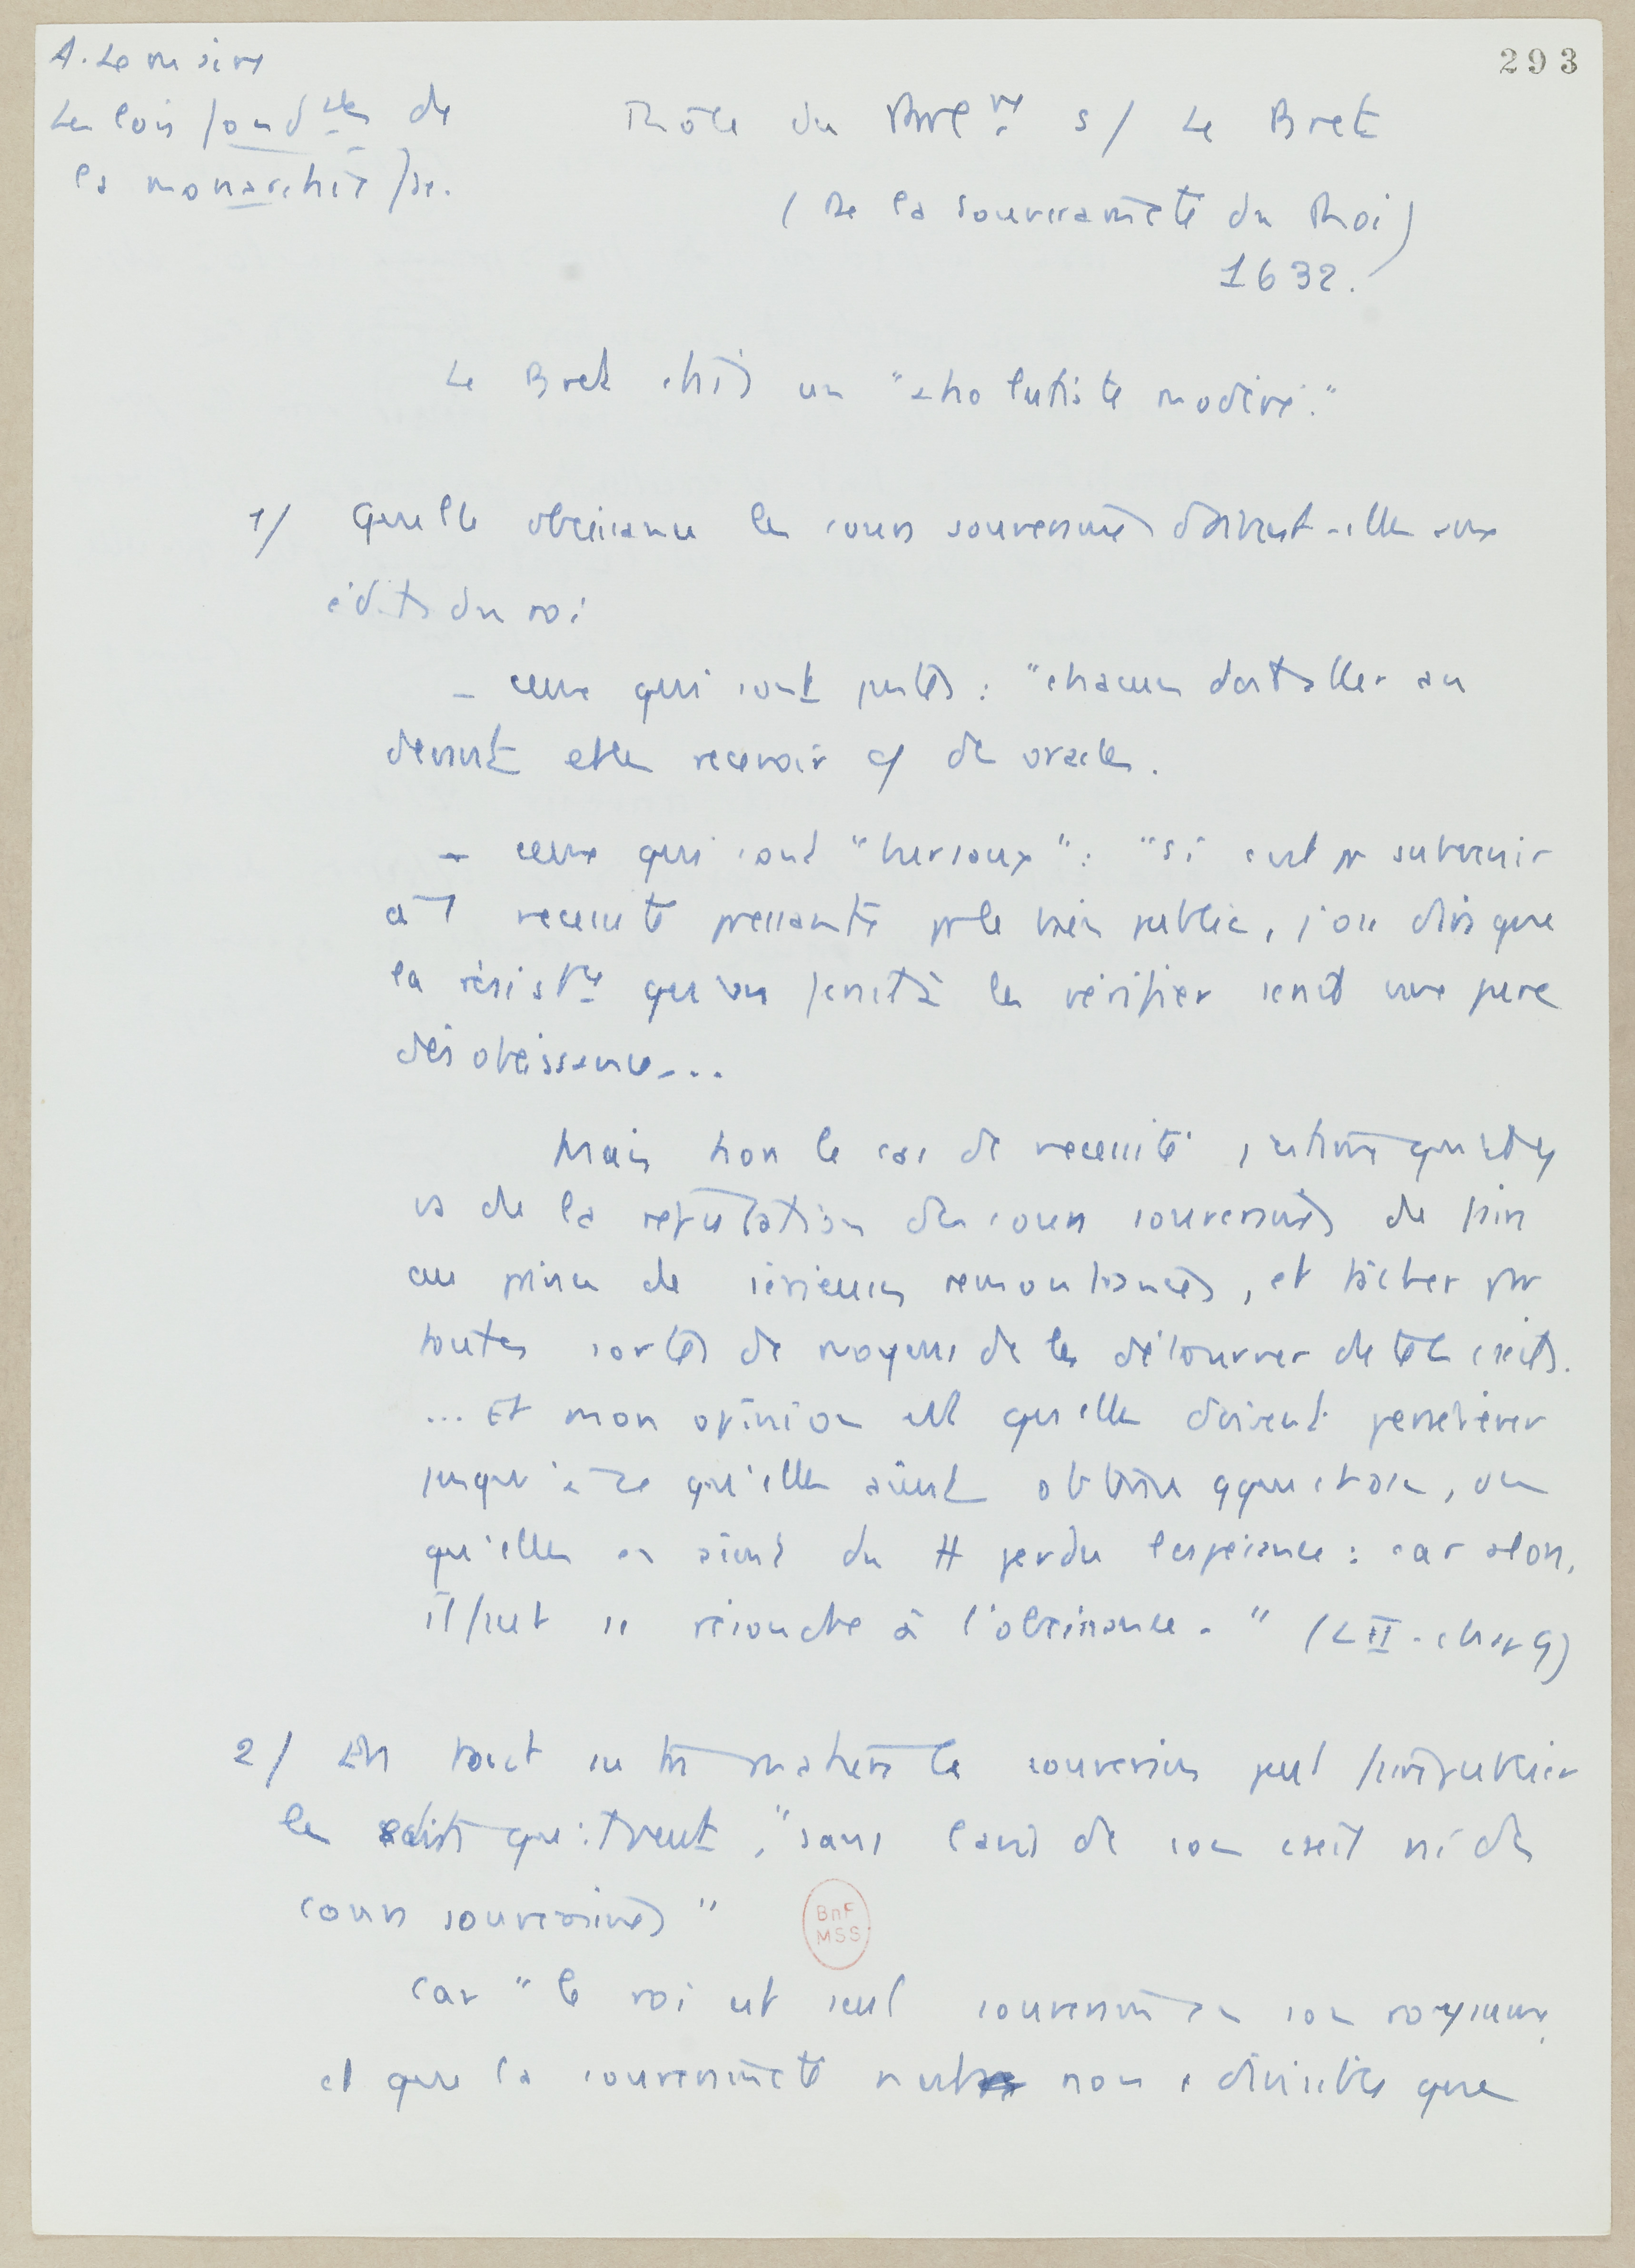 293
A. Lemaire
Les lois fondles de
la monarchie fse.
Rôle du Parlnt s/ Le Bret
(De la souveraineté du Roi)
1632.
Le Bret était un "absolutiste modéré."
1/ Quelle obéissance les cours souveraines doivent-elles aux
édits du roi
- ceux qui sont justes : "chacun doit aller au
devant et les recevoir c/ des oracles.
- ceux qui sont "bursaux" : "si c'est pr subvenir
à 1 nécessité pressante pr le bien public, j'ose dire que
la résistce qu'on ferait à les vérifier serait une pure
désobéissance...
Mais hors le cas de nécessité, j'estime qu'il y
va de la réputation des cours souveraines de faire
au prince de sérieuses remontrances, et tâcher par
toutes sortes de moyens de les détourner de tels conseils.
... Et mon opinion est qu'elles doivent persévérer
jusqu'à ce qu'elles aient obtenu qque chose, ou
qu'elles en aient du tt perdu l'espérance : car alors,
il faut se résoudre à l'obéissance." (L II - chap 9)
2/ En tout autre matière le souverain peut faire publier
les édits qu'il veut, "sans l'avis de son conseil ni des
cours souveraines"
BnF
MSS
car "le roi est seul souverain en son royaume,
et que la souveraineté n'est non + divisible que